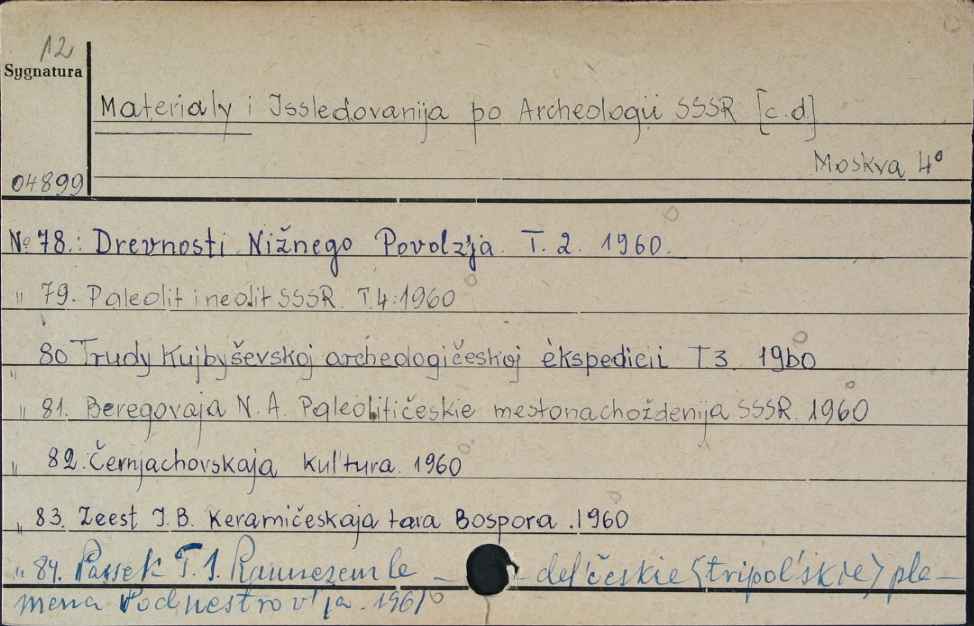 12
Sygnatura
Materialy i Issledovanija po Archeologii SSSR [c.d]
Moskva 4°
04899
№ 78.: Drevnosti Nižnego Povolz'ja. T. 2. 1960.
" 79. Paleolit i neolit SSSR. T.4. 1960
80 Trudy Kujbyševskoj archeologičeskoj èkspedicii T.3. 1960
" 81. Beregovaja N.A. Paleolitičeskie mestonachoždenija SSSR. 1960
" 82. Černjachovskaja kul'tura. 1960
" 83. Zeest I.B. Keramičeskaja tara Bospora. 1960
" 84. Passek T.S. Rannezemle - del'českie (tripol'skie) ple-
mena Podnestrov'ja. 1961